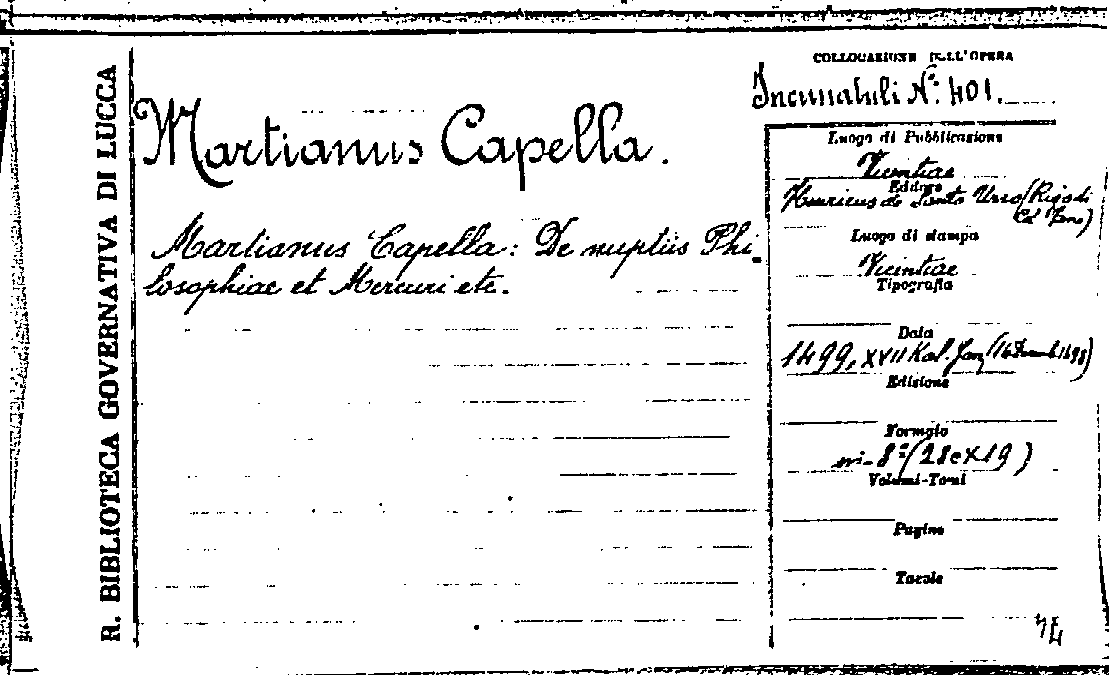 R. BIBLIOTECA GOVERNATIVA DI LUCCA
COLLOCAZIONE DELL'OPERA
Incunabuli N.º 401.
Martianus Capella.
Martianus Capella: De nuptiis Phi-
losophiae et Mercuri etc.
Luogo di Pubblicazione
Vicentiae
Editore
Henricus de Sancto Urso (Rigo di
Cà Zeno)
Luogo di stampa
Vicintiae
Tipografia
Data
1499, XVII Kal. Jan (16 Decemb 1498)
Edizione
Formato
in-8º (28c×19)
Volumi-Tomi
Pagine
Tavole